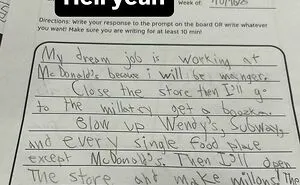 Hell yeah
Week of:
Directions: Write your response to the prompt on the board OR write whatever
you want! Make sure you are writing for at least 10 min!
My dream job is working at
McDonald's becaue i will be manger.
Close the store then I'll go
to the millatry get a
Blow up Wendy's, Subway,
and every single food place
except McDonald's. Then I'll open
The store and make millons. The